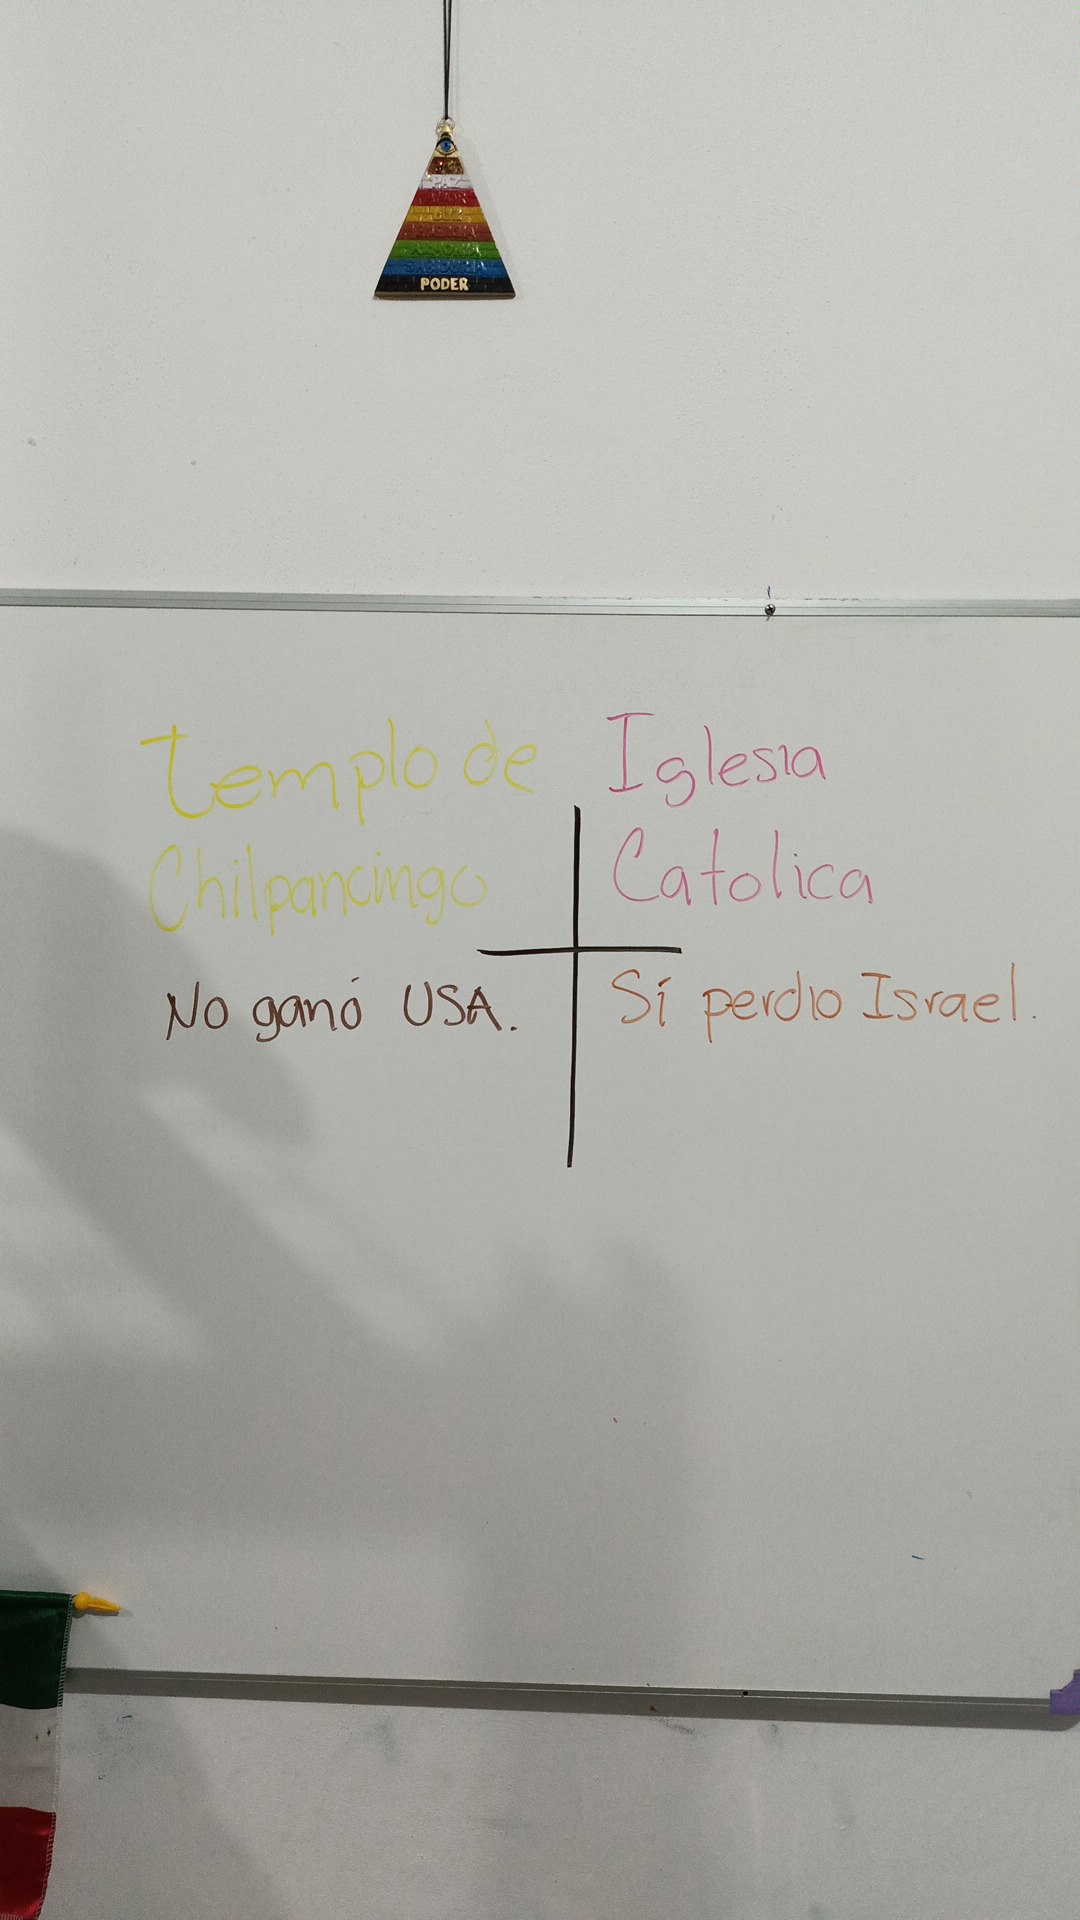 PAZ
AMOR
SABIDURIA
PODER
Templo de
Chilpancingo
No ganó USA.
Iglesia
Catolica
Sí perdio Israel.